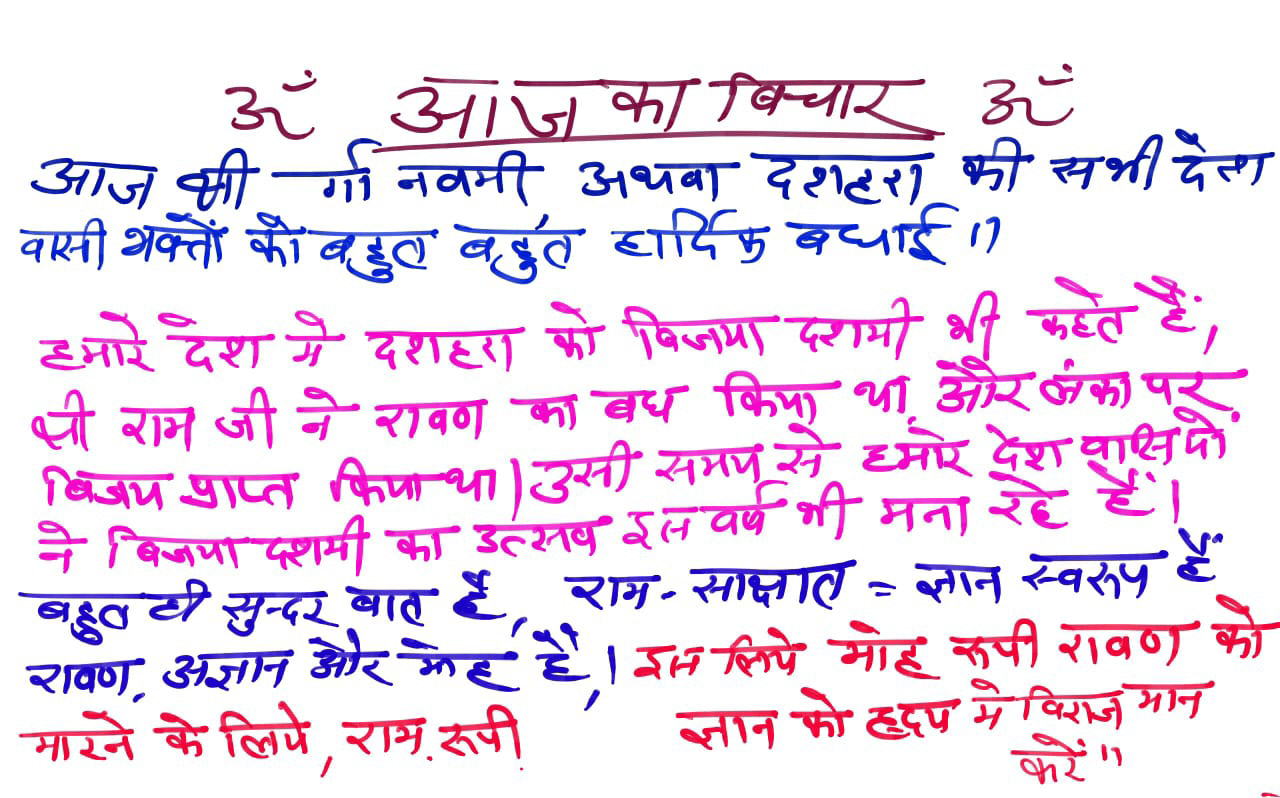 ॐ आज का बिचार ॐ
आज श्री र्गा नवमी अथवा दशहरा की सभी देश
वासी भक्तों को बहुत बहुत हार्दिक बधाई ''
हमारे देश मे दशहरा को बिजया दशमी भी कहते हैं,
श्री राम जी ने रावण का बध किया था, और लंका पर
बिजय प्राप्त किया था | उसी समय से हमारे देश वासियों
ने बिजया दशमी का उत्सव इस वर्ष भी मना रहे हैं।
बहुत ही सुन्दर बात है, राम - साक्षात = ज्ञान स्वरुप हैं
रावण, अज्ञान और मोह है, । इस लिये मोह रूपी रावण को
मारने के लिये, राम. रूपी ज्ञान को हृदय मे विराज मान
करें ''